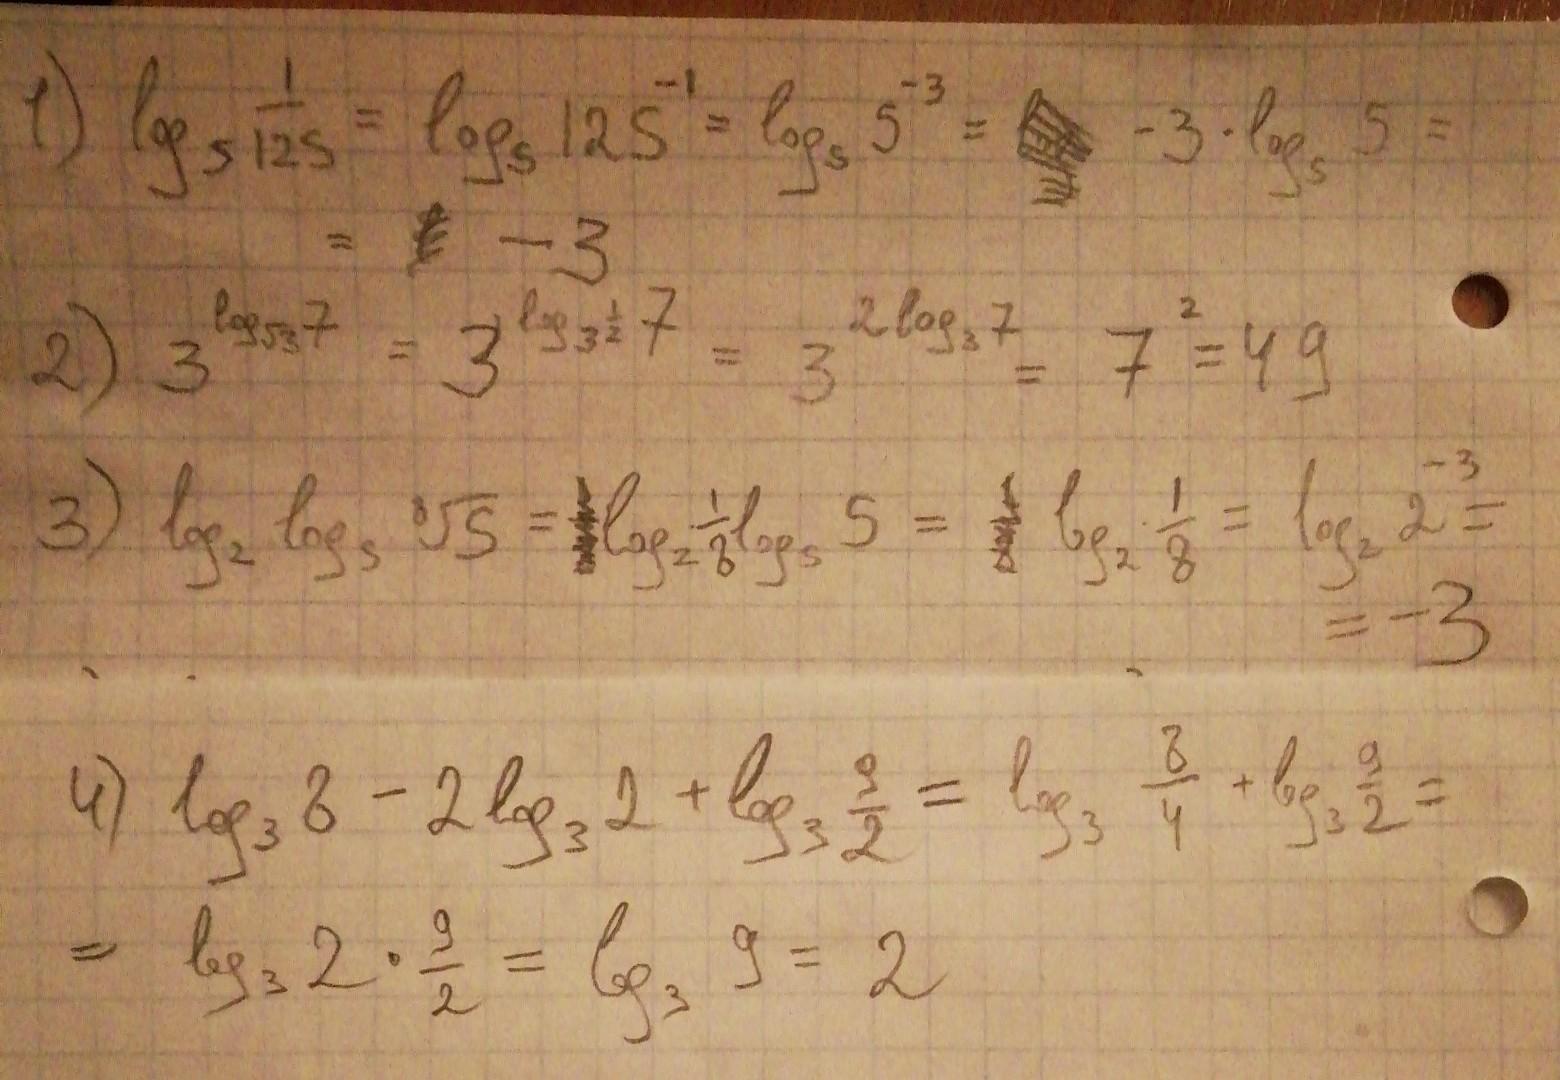 1) log₅ 1/125 = log₅ 125⁻¹ = log₅ 5⁻³ = -3 · log₅ 5 =
= -3
2) 3^(log_√3 7) = 3^(log_(3^(1/2)) 7) = 3^(2 log₃ 7) = 7² = 49
3) log₂ log₅ ⁸√5 = log₂ 1/8 log₅ 5 = log₂ 1/8 = log₂ 2⁻³ =
= -3
4) log₃ 8 - 2 log₃ 2 + log₃ 9/2 = log₃ 8/4 + log₃ 9/2 =
= log₃ 2 · 9/2 = log₃ 9 = 2